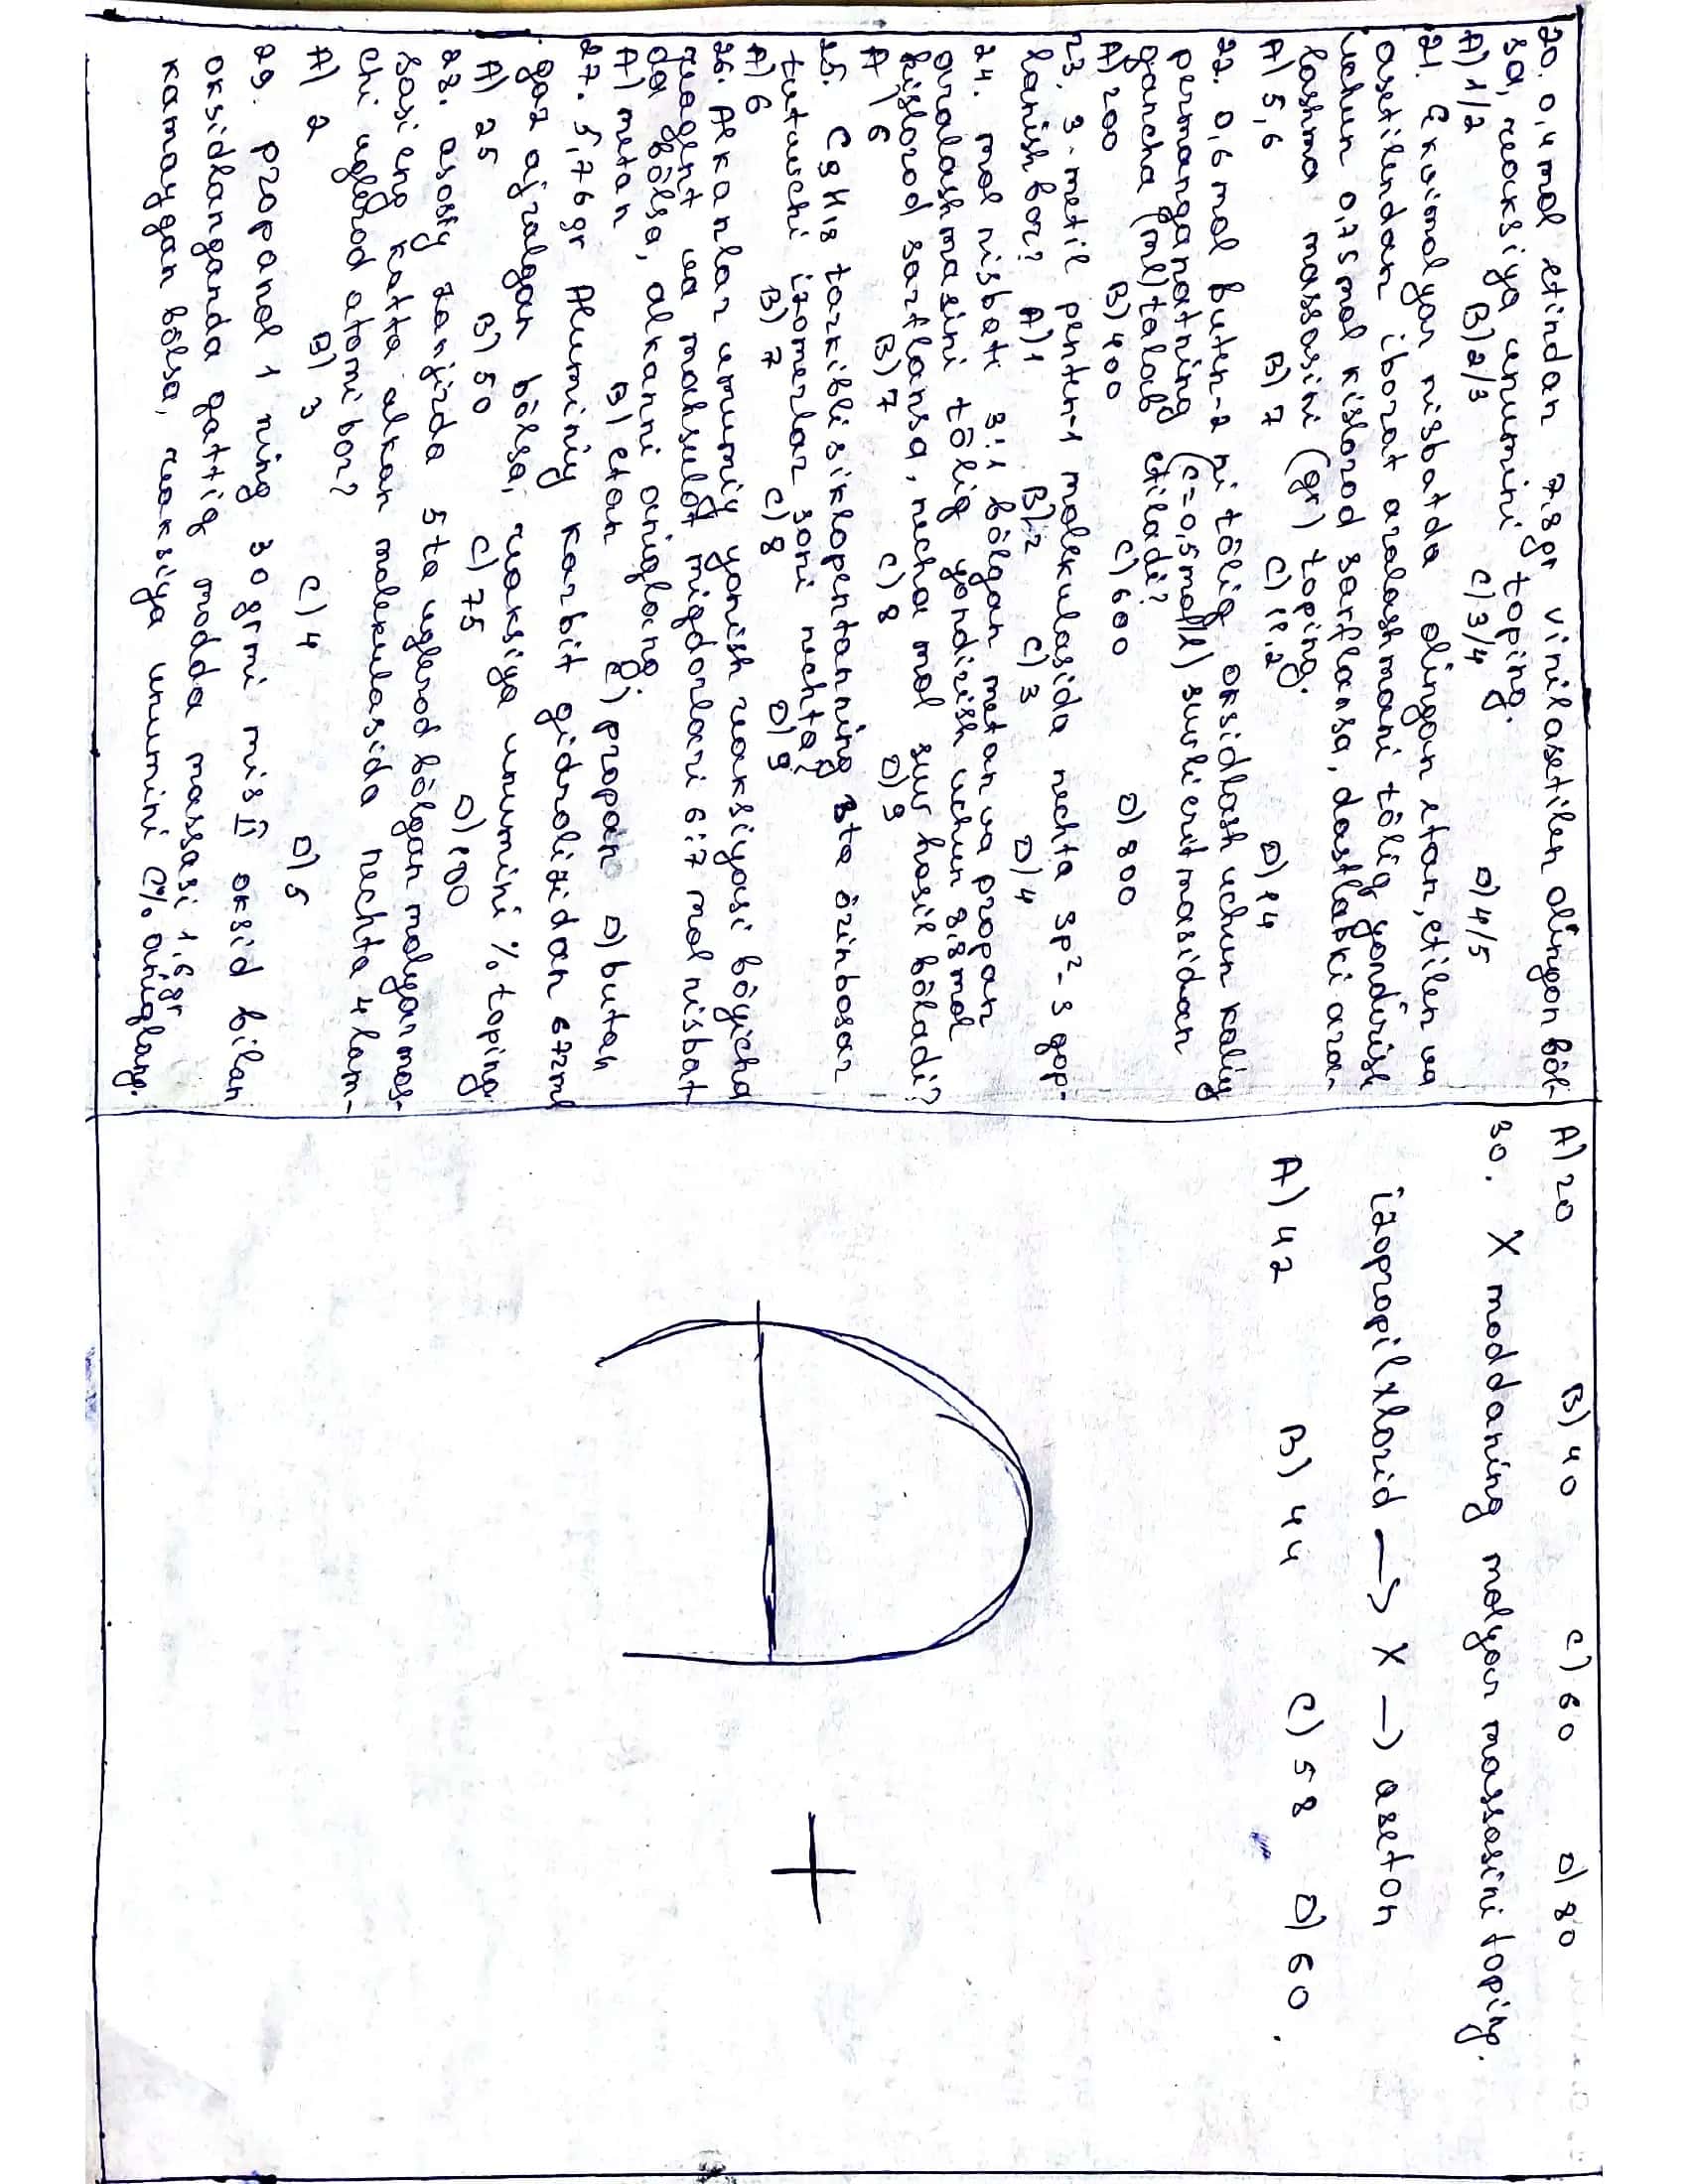 20. 0,4 mol etindan 7,8gr vinilasetilen olingan bõl-
sa, reaksiya unumini toping.
A) 1/2 B) 2/3 C) 3/4 D) 4/5
21. Ekvimolyar nisbatda olingan etan, etilen va
asetilendan iborat aralashmani tõliq yondirish
uchun 0,75 mol kislorod sarflansa, dastlabki ara-
lashma massasini (gr) toping.
A) 5,6 B) 7 C) 11,2 D) 14
22. 0,6 mol buten-2 ni tõliq oksidlash uchun kaliy
permanganatning (c=0,5mol/l) suvli eritmasidan
qancha (ml) talab etiladi?
A) 200 B) 400 C) 600 D) 800
23. 3-metil penten-1 molekulasida nechta sp²-s qop-
lanish bor? A) 1 B) 2 C) 3 D) 4
24. mol nisbati 3:1 bõlgan metan va propan
aralashmasini tõliq yondirish uchun 8,8mol
kislorod sarflansa, necha mol suv hosil bõladi?
A) 6 B) 7 C) 8 D) 9
25. C9H18 tarkibli siklopentanning 3ta õrinbosar
tutuvchi izomerlar soni nechta?
A) 6 B) 7 C) 8 D) 9
26. Alkanlar umumiy yonish reaksiyasi bõyicha
reagent va mahsulot miqdorlari 6:7 mol nisbat
da bõlsa, alkanni aniqlang.
A) metan B) etan C) propan D) butan
27. 5,76gr Aluminiy karbit gidrolizidan 672ml
gaz ajralgan bõlsa, reaksiya unumini % toping
A) 25 B) 50 C) 75 D) 100
28. asosiy zanjirda 5ta uglerod bõlgan molyar mas-
sasi eng katta alkan molekulasida nechta 4 lam-
chi uglerod atomi bor?
A) 2 B) 3 C) 4 D) 5
29. propanol 1 ning 30grmi mis II oksid bilan
oksidlanganda qattiq modda massasi 1,6gr
kamaygan bõlsa, reaksiya unumini (% aniqlang.
A) 20 B) 40 C) 60 D) 80
30. X moddaning molyar massasini toping.
izopropilxlorid → X → aseton
A) 42 B) 44 C) 58 D) 60.